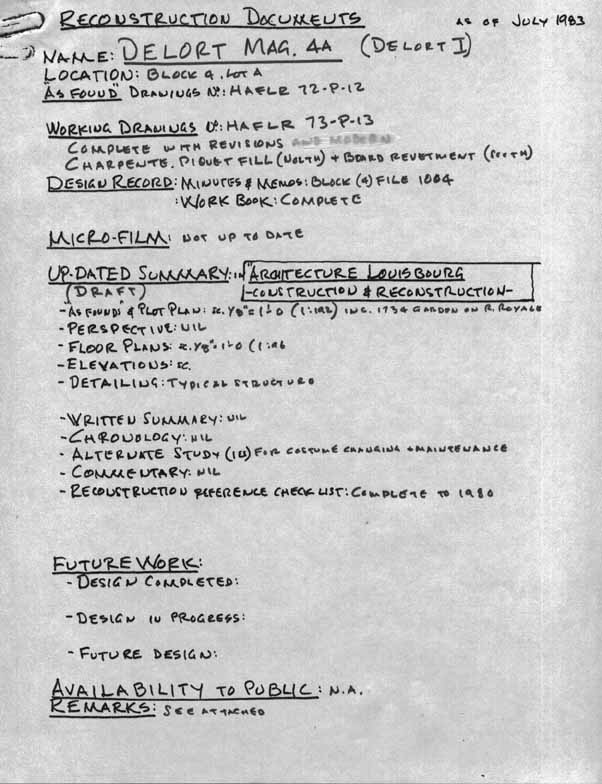 RECONSTRUCTION DOCUMENTS AS OF JULY 1983
NAME: DELORT MAG. 4A (DELORT I)
LOCATION: BLOCK 4, LOT A
"AS FOUND" DRAWINGS Nº: HAFLR 72-P-12
WORKING DRAWINGS Nº: HAFLR 73-P-13
COMPLETE WITH REVISIONS AND MODERN
CHARPENTE, PIQUET FILL (NORTH) + BOARD REVETMENT (SOUTH)
DESIGN RECORD: MINUTES & MEMOS: BLOCK (4) FILE 1004
: WORK BOOK: COMPLETE
MICRO-FILM: NOT UP TO DATE
UP-DATED SUMMARY: in "ARCHITECTURE LOUISBOURG
(DRAFT) -CONSTRUCTION & RECONSTRUCTION-
- AS FOUND & PLOT PLAN: SC. 1/8"=1'-0 (1:192) INC. 1734 GARDEN ON R. ROYALE
- PERSPECTIVE: NIL
- FLOOR PLANS: SC. 1/8"=1'-0 (1:96
- ELEVATIONS: SC.
- DETAILING: TYPICAL STRUCTURE
- WRITTEN SUMMARY: NIL
- CHRONOLOGY: NIL
- ALTERNATE STUDY FOR COSTUME CHANGING + MAINTENANCE
- COMMENTARY: NIL
- RECONSTRUCTION REFERENCE CHECK LIST: COMPLETE TO 1980
FUTURE WORK:
- DESIGN COMPLETED:
- DESIGN IN PROGRESS:
- FUTURE DESIGN:
AVAILABILITY TO PUBLIC: N.A.
REMARKS: SEE ATTACHED